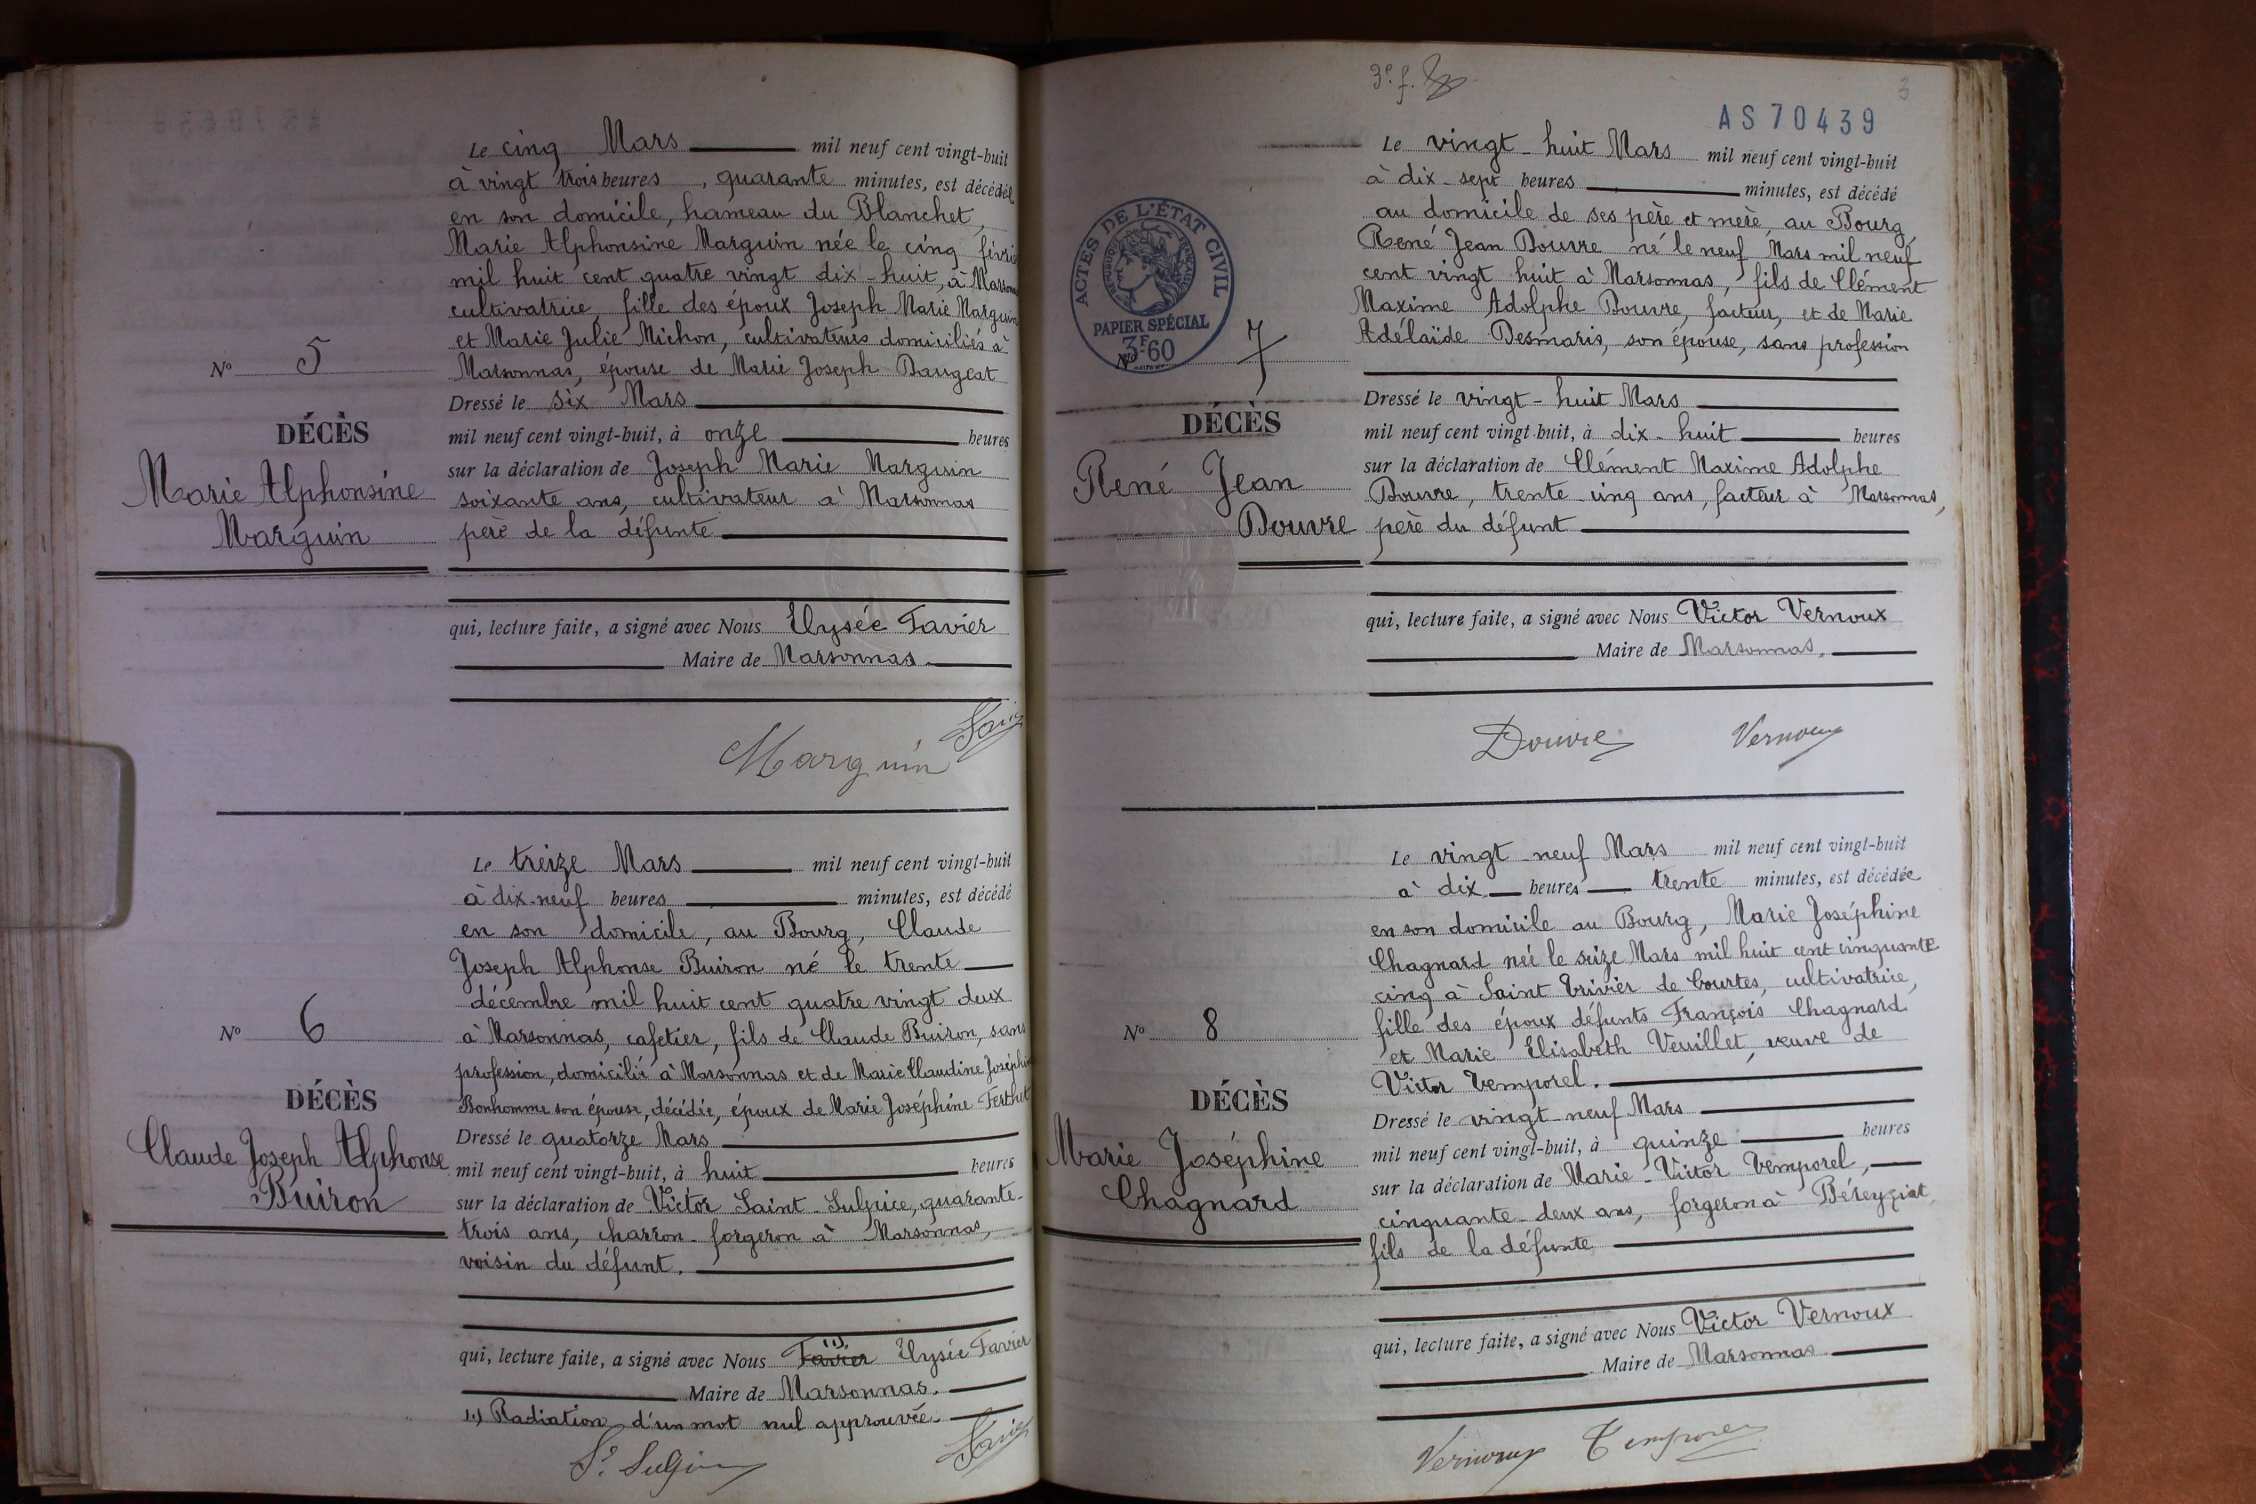 Le cinq Mars mil neuf cent vingt-huit
à vingt trois heures, quarante minutes, est décédée
en son domicile, hameau du Blanchet,
Marie Alphonsine Marguin née le cinq févri
mil huit cent quatre vingt dix-huit, à Marsonn
cultivatrice, fille des époux Joseph Marie Marguin
et Marie Julie Michon, cultivateurs domiciliés à
Marsonnas, épouse de Marie Joseph Dangeat
Nº 5
Dressé le six Mars
mil neuf cent vingt-huit, à onze heures
sur la déclaration de Joseph Marie Marguin
soixante ans, cultivateur à Marsonnas
père de la défunte
DÉCÈS
Marie Alphonsine
Marguin
qui, lecture faite, a signé avec Nous Elysée Favier
Maire de Marsonnas.
Marguin
Le treize Mars mil neuf cent vingt-huit
à dix-neuf heures minutes, est décédé
en son domicile, au Bourg, Claude
Joseph Alphonse Buiron né le trente
décembre mil huit cent quatre vingt deux
à Marsonnas, cafetier, fils de Claude Buiron, sans
profession, domicilié à Marsonnas et de Marie Claudine Joséphin
Bonhomme son épouse, décédée, époux de Marie Joséphine Ferthet
Nº 6
Dressé le quatorze Mars
mil neuf cent vingt-huit, à huit heures
sur la déclaration de Victor Saint-Sulpice, quarante-
trois ans, charron-forgeron à Marsonnas,
voisin du défunt.
DÉCÈS
Claude Joseph Alphonse
Buiron
qui, lecture faite, a signé avec Nous Favier (1) Elysée Favier
Maire de Marsonnas.
(1) Radiation d'un mot nul approuvée.
3e f.
3
AS 70439
Le vingt-huit Mars mil neuf cent vingt-huit
à dix-sept heures minutes, est décédé
au domicile de ses père et mère, au Bourg,
René Jean Douvre né le neuf Mars mil neuf
cent vingt huit à Marsonnas, fils de Clément
Maxime Adolphe Douvre, facteur, et de Marie
Adélaïde Desmaris, son épouse, sans profession
ACTES DE L'ÉTAT CIVIL
RÉPUBLIQUE FRANÇAISE
PAPIER SPÉCIAL
3F60
Nº 7
Dressé le vingt-huit Mars
mil neuf cent vingt-huit, à dix-huit heures
sur la déclaration de Clément Maxime Adolphe
Douvre, trente-cinq ans, facteur à Marsonnas,
père du défunt
DÉCÈS
René Jean
Douvre
qui, lecture faite, a signé avec Nous Victor Vernoux
Maire de Marsonnas.
Douvre Vernoux
Le vingt-neuf Mars mil neuf cent vingt-huit
à dix heures trente minutes, est décédée
en son domicile au Bourg, Marie Joséphine
Chagnard née le seize Mars mil huit cent cinquante
cinq à Saint Trivier de Courtes, cultivatrice,
fille des époux défunts François Chagnard
et Marie Elisabeth Veuillet, veuve de
Victor Temporel.
Nº 8
Dressé le vingt-neuf Mars
mil neuf cent vingt-huit, à quinze heures
sur la déclaration de Marie-Victor Temporel,
cinquante-deux ans, forgeron à Béreyziat,
fils de la défunte
DÉCÈS
Marie Joséphine
Chagnard
qui, lecture faite, a signé avec Nous Victor Vernoux
Maire de Marsonnas
Vernoux Temporel